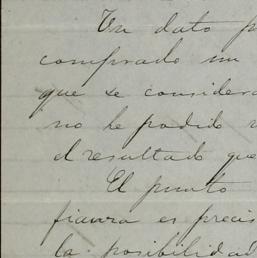 Un dato p
comprado un
que se considera
no he podido
el resultado que
El punto
figura es precis
la posibilidad